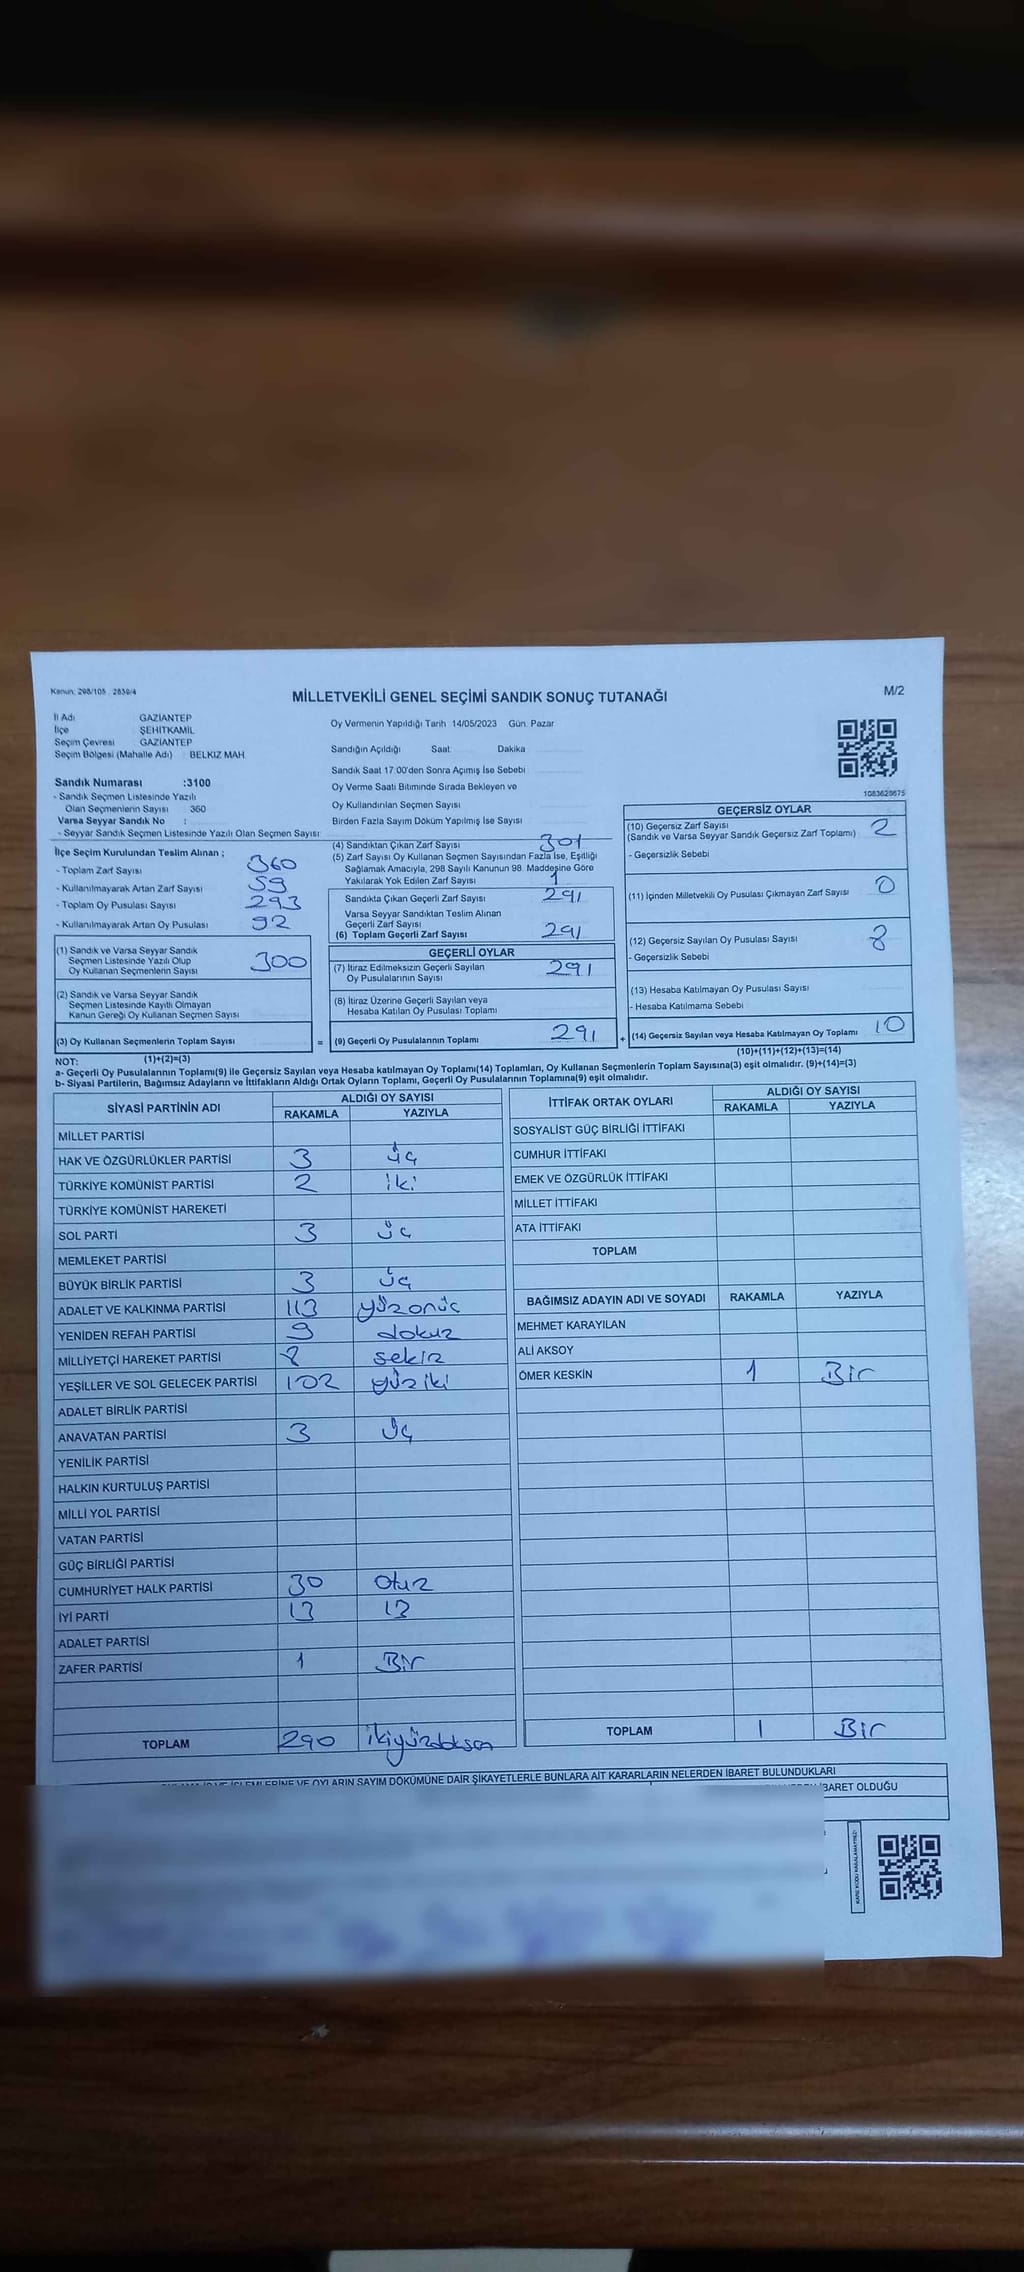 Kanun: 298/105 . 2839/4
MİLLETVEKİLİ GENEL SEÇİMİ SANDIK SONUÇ TUTANAĞI
M/2
İl Adı GAZİANTEP
İlçe ŞEHİTKAMİL
Seçim Çevresi GAZİANTEP
Seçim Bölgesi (Mahalle Adı) : BELKIZ MAH.
Oy Vermenin Yapıldığı Tarih 14/05/2023 Gün: Pazar
Sandığın Açıldığı Saat Dakika
Sandık Saat 17:00'den Sonra Açımış İse Sebebi
Oy Verme Saati Bitiminde Sırada Bekleyen ve
Oy Kullandırılan Seçmen Sayısı
Birden Fazla Sayım Döküm Yapılmış İse Sayısı
1083628675
Sandık Numarası :3100
- Sandık Seçmen Listesinde Yazılı
Olan Seçmenlerin Sayısı 360
Varsa Seyyar Sandık No :
- Seyyar Sandık Seçmen Listesinde Yazılı Olan Seçmen Sayısı:
İlçe Seçim Kurulundan Teslim Alınan ;
- Toplam Zarf Sayısı 360
- Kullanılmayarak Artan Zarf Sayısı 59
- Toplam Oy Pusulası Sayısı 293
- Kullanılmayarak Artan Oy Pusulası 92
(1) Sandık ve Varsa Seyyar Sandık
Seçmen Listesinde Yazılı Olup
Oy Kullanan Seçmenlerin Sayısı 300
(2) Sandık ve Varsa Seyyar Sandık
Seçmen Listesinde Kayıtlı Olmayan
Kanun Gereği Oy Kullanan Seçmen Sayısı
(3) Oy Kullanan Seçmenlerin Toplam Sayısı =
(4) Sandıktan Çıkan Zarf Sayısı 301
(5) Zarf Sayısı Oy Kullanan Seçmen Sayısından Fazla İse, Eşitliği
Sağlamak Amacıyla, 298 Sayılı Kanunun 98. Maddesine Göre
Yakılarak Yok Edilen Zarf Sayısı 1
Sandıkta Çıkan Geçerli Zarf Sayısı 291
Varsa Seyyar Sandıktan Teslim Alınan
Geçerli Zarf Sayısı
(6) Toplam Geçerli Zarf Sayısı 291
GEÇERLİ OYLAR
(7) İtiraz Edilmeksizin Geçerli Sayılan
Oy Pusulalarının Sayısı 291
(8) İtiraz Üzerine Geçerli Sayılan veya
Hesaba Katılan Oy Pusulası Toplamı
(9) Geçerli Oy Pusulalarının Toplamı 291 +
GEÇERSİZ OYLAR
(10) Geçersiz Zarf Sayısı
(Sandık ve Varsa Seyyar Sandık Geçersiz Zarf Toplamı) 2
- Geçersizlik Sebebi
(11) İçinden Milletvekili Oy Pusulası Çıkmayan Zarf Sayısı 0
(12) Geçersiz Sayılan Oy Pusulası Sayısı 8
- Geçersizlik Sebebi
(13) Hesaba Katılmayan Oy Pusulası Sayısı
- Hesaba Katılmama Sebebi
(14) Geçersiz Sayılan veya Hesaba Katılmayan Oy Toplamı 10
NOT: (1)+(2)=(3)
(10)+(11)+(12)+(13)=(14)
a- Geçerli Oy Pusulalarının Toplamı(9) ile Geçersiz Sayılan veya Hesaba katılmayan Oy Toplamı(14) Toplamları, Oy Kullanan Seçmenlerin Toplam Sayısına(3) eşit olmalıdır. (9)+(14)=(3)
b- Siyasi Partilerin, Bağımsız Adayların ve İttifakların Aldığı Ortak Oyların Toplamı, Geçerli Oy Pusulalarının Toplamına(9) eşit olmalıdır.
SİYASİ PARTİNİN ADI ALDIĞI OY SAYISI
RAKAMLA YAZIYLA
MİLLET PARTİSİ
HAK VE ÖZGÜRLÜKLER PARTİSİ 3 üç
TÜRKİYE KOMÜNİST PARTİSİ 2 iki
TÜRKİYE KOMÜNİST HAREKETİ
SOL PARTİ 3 üç
MEMLEKET PARTİSİ
BÜYÜK BİRLİK PARTİSİ 3 üç
ADALET VE KALKINMA PARTİSİ 113 yüzonüç
YENİDEN REFAH PARTİSİ 9 dokuz
MİLLİYETÇİ HAREKET PARTİSİ 8 sekiz
YEŞİLLER VE SOL GELECEK PARTİSİ 102 yüziki
ADALET BİRLİK PARTİSİ
ANAVATAN PARTİSİ 3 üç
YENİLİK PARTİSİ
HALKIN KURTULUŞ PARTİSİ
MİLLİ YOL PARTİSİ
VATAN PARTİSİ
GÜÇ BİRLİĞİ PARTİSİ
CUMHURİYET HALK PARTİSİ 30 otuz
İYİ PARTİ 13 13
ADALET PARTİSİ
ZAFER PARTİSİ 1 Bir
TOPLAM 290 ikiyüzdoksan
İTTİFAK ORTAK OYLARI ALDIĞI OY SAYISI
RAKAMLA YAZIYLA
SOSYALİST GÜÇ BİRLİĞİ İTTİFAKI
CUMHUR İTTİFAKI
EMEK VE ÖZGÜRLÜK İTTİFAKI
MİLLET İTTİFAKI
ATA İTTİFAKI
TOPLAM
BAĞIMSIZ ADAYIN ADI VE SOYADI RAKAMLA YAZIYLA
MEHMET KARAYILAN
ALİ AKSOY
ÖMER KESKİN 1 Bir
TOPLAM 1 Bir
İŞLEMLERİNE VE OYLARIN SAYIM DÖKÜMÜNE DAİR ŞİKAYETLERLE BUNLARA AİT KARARLARIN NELERDEN İBARET BULUNDUKLARI
İBARET OLDUĞU
KARE KODU KARALAMAYINIZ!